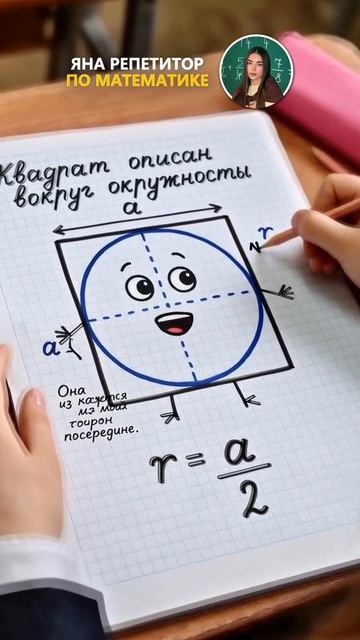 ЯНА РЕПЕТИТОР
ПО МАТЕМАТИКЕ
Квадрат описан
вокруг окружносты
a
r
a
Она
из кажется
мз мой
тоирон
посередине.
r = a
2